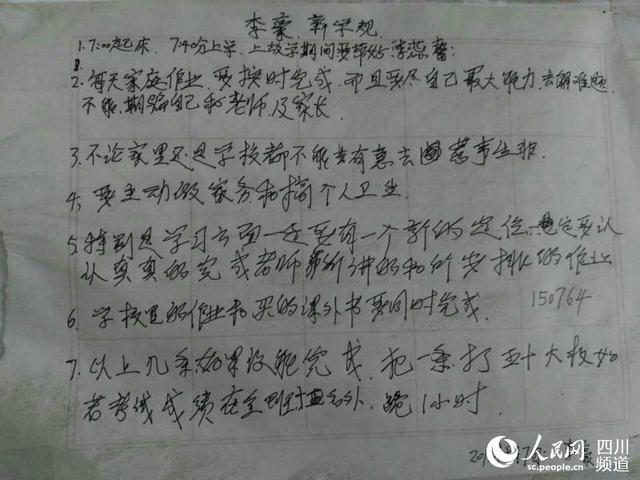 李豪.新家规
1.7:00起床.7:40分上学.上放学期间要带好李蕊馨:
2.每天家庭作业.要按时完成.而且要尽自己最大能力.去解难题
不能.期骗自己和老师.及家长.
3.不论家里还是学校都不能有意去惹事生非.
4.要主动做家务和搞个人卫生.
5.特别是学习方面一定要有一个新的定位.一定要认
认真真的完成老师所讲的和所安排的作业
6.学校里的作业和买的课外书要同时完成.
150764
7.以上几条如果没能完成.把一条打五十大板如
若考试成绩在全班 名外.跪1小时.
人民网 四川频道
sc.people.com.cn